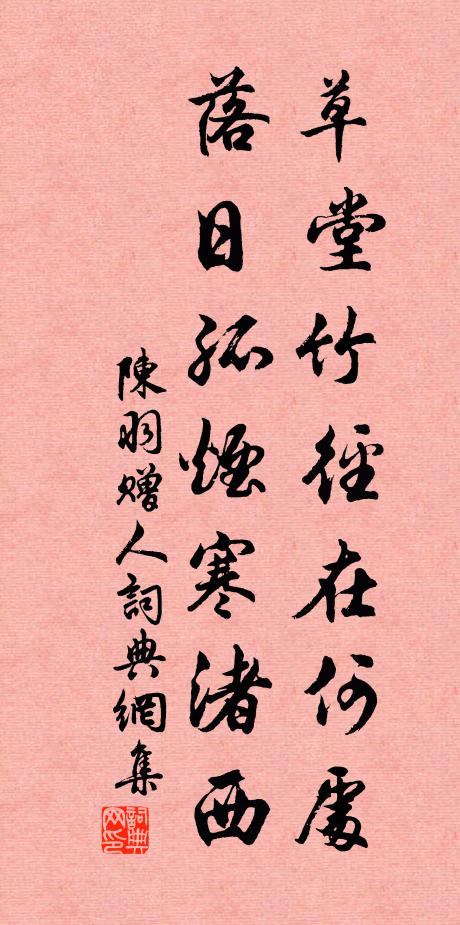 草堂竹徑在何處
落日孤煙寒渚西
陳羽贈人詞典網集
詞典
网印